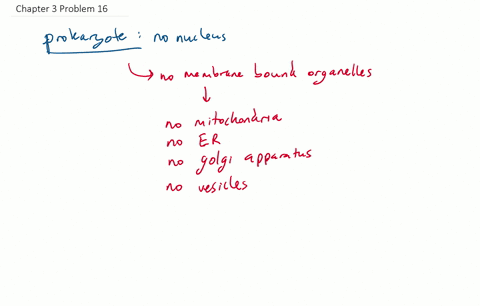 Chapter 3 Problem 16
prokaryote: no nucleus
no membrane bound organelles
no mitochondria
no ER
no golgi apparatus
no vesicles